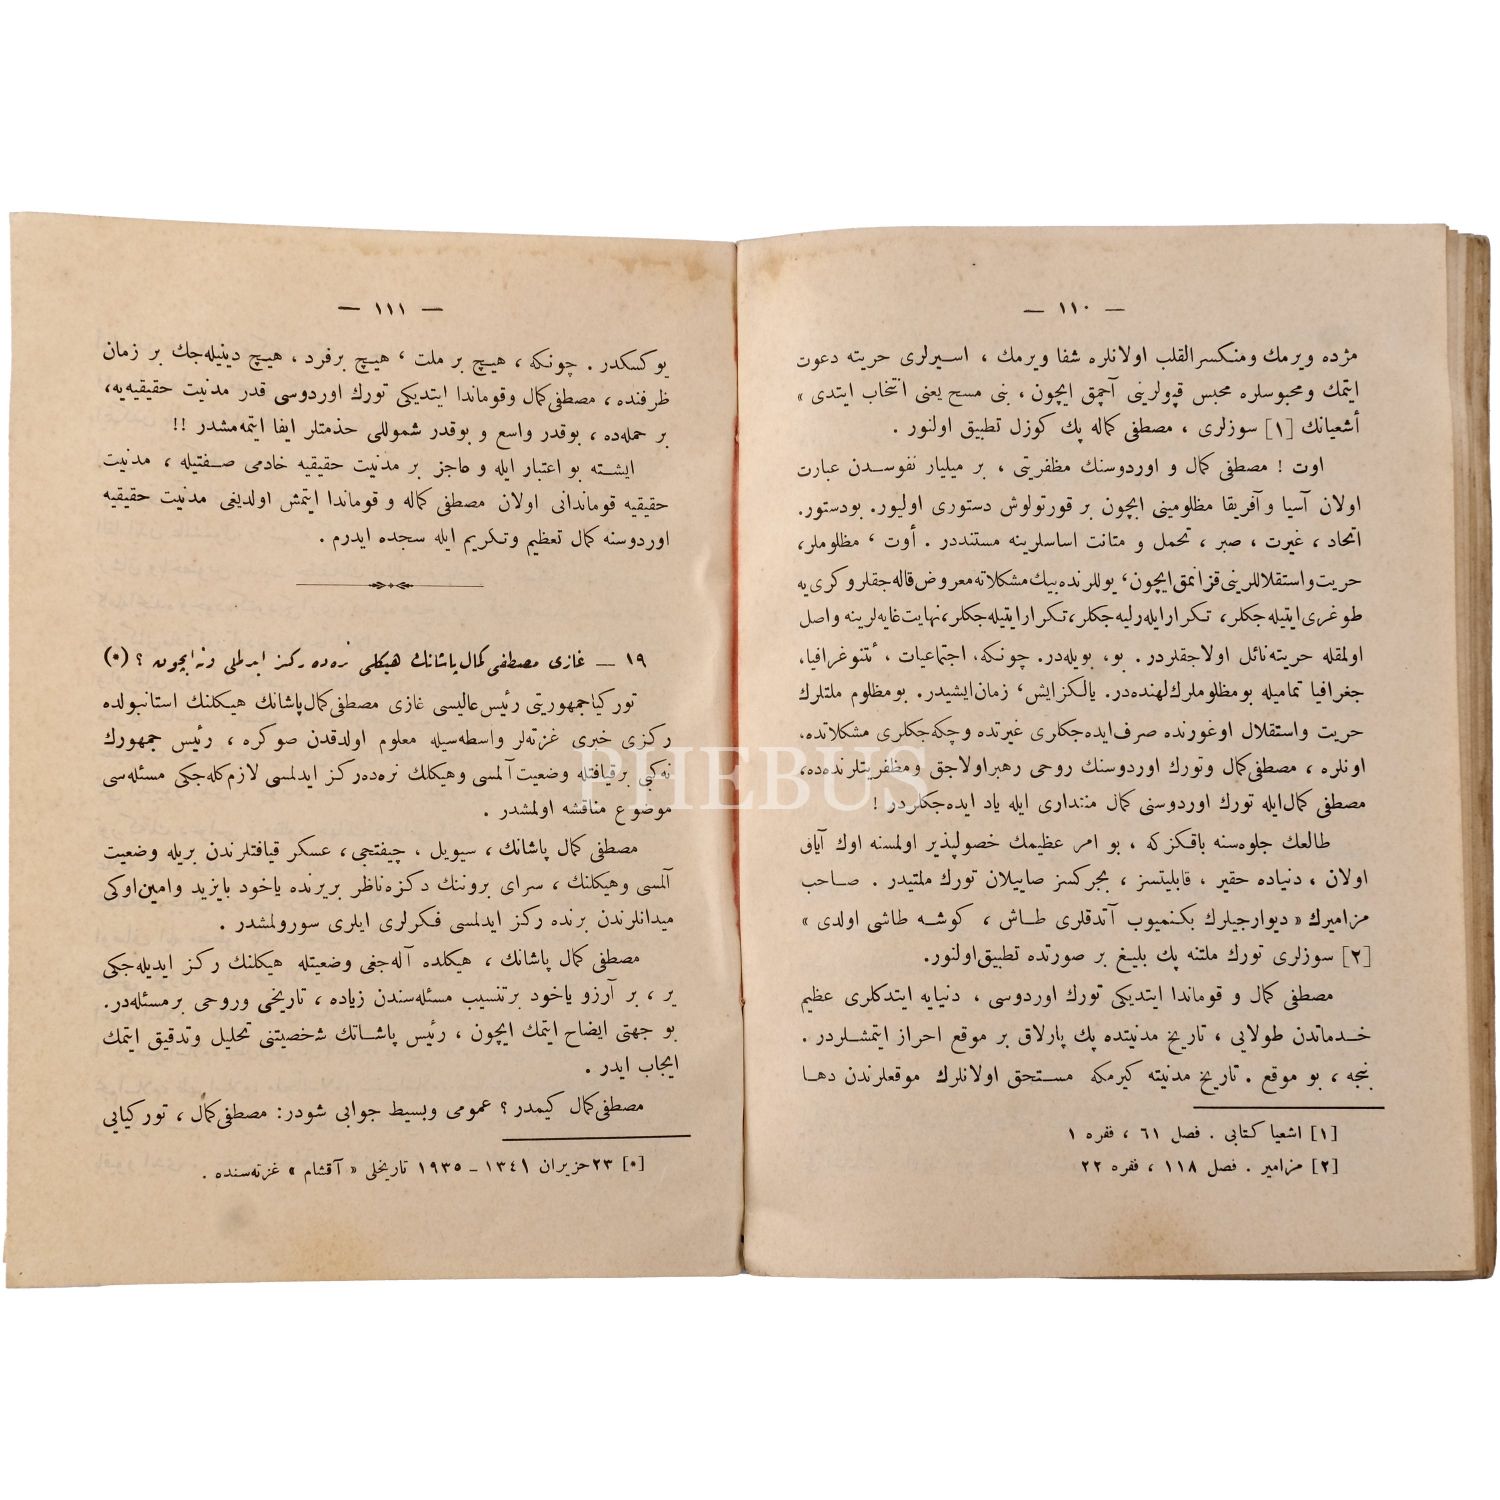 — ١١٠ —
مژده ویرمك ومنكسرالقلب اولانلره شفا ویرمك ، اسیرلری حریته دعوت
ایتمك ومحبوسلره محبس قپولرینی آچمق ایچون ، بنی مسح یعنی انتخاب ایتدی »
أشعیانك [١] سوزلری ، مصطفی كماله پك كوزل تطبیق اولنور .
اوت ! مصطفی كمال و اوردوسنك مظفریتی ، بر میلیار نفوسدن عبارت
اولان آسیا وآفریقا مظلومینی ایچون بر قورتولوش دستوری اولیور. بودستور.
اتحاد ، غیرت ، صبر ، تحمل و متانت اساسلرینه مستنددر . أوت ، مظلوملر،
حریت واستقلاللرینی قزانمق ایچون، یوللرنده بیك مشكلاته معروض قاله جقلر وكری یه
طوغری ایتیله جكلر، تكرار ایله رلیه جكلر، تكرار ایتیله جكلر، نهایت غایه لرینه واصل
اولمقله حریته نائل اولاجقلردر. بو، بویله در. چونكه، اجتماعیات ، ئتنوغرافیا،
جغرافیا تمامیله بو مظلوملرك لهنده در. یالكز ایش، زمان ایشیدر. بو مظلوم ملتلرك
حریت واستقلال اوغورنده صرف ایده جكلری غیرتده وچكه جكلری مشكلاتده،
اونلره ، مصطفی كمال وتورك اوردوسنك روحی رهبر اولاجق ومظفریتلرنده ده،
مصطفی كمال ایله تورك اوردوسنی كمال منتداری ایله یاد ایده جكلردر !
طالعك جلوه سنه باقكزكه ، بو امر عظیمك حصولپذیر اولمسنه اوك آیاق
اولان ، دنیاده حقیر ، قابلیتسز ، بجركسز صاییلان تورك ملتیدر . صاحب
مزامیرك « دیوارجیلرك بكنمیوب آتدقلری طاش ، كوشه طاشی اولدی »
[٢] سوزلری تورك ملتنه پك بلیغ بر صورتده تطبیق اولنور.
مصطفی كمال و قوماندا ایتدیكی تورك اوردوسی ، دنیایه ایتدكلری عظیم
خدماتدن طولایی ، تاریخ مدنیتده پك پارلاق بر موقع احراز ایتمشلردر .
بنجه ، بو موقع . تاریخ مدنیته كیرمكه مستحق اولانلرك موقعلرندن دها
[١] اشعیا كتابی . فصل ٦١ ، فقره ١
[٢] مزامیر . فصل ١١٨ ، فقره ٢٢
— ١١١ —
یوكسكدر . چونكه ، هیچ بر ملت ، هیچ برفرد ، هیچ دینیله جك بر زمان
ظرفنده ، مصطفی كمال وقوماندا ایتدیكی تورك اوردوسی قدر مدنیت حقیقیه یه،
بر حمله ده ، بوقدر واسع و بوقدر شموللی خدمتلر ایفا ایتمه مشدر !!
ایشته بو اعتبار ایله و عاجز بر مدنیت حقیقیه خادمی صفتیله ، مدنیت
حقیقیه قوماندانی اولان مصطفی كماله و قوماندا ایتمش اولدیغی مدنیت حقیقیه
اوردوسنه كمال تعظیم وتكریم ایله سجده ایدرم .
١٩ — غازی مصطفی كمال پاشانك هیكلی نره ده ركز ایدلملی ونه ایچون ؟ (*)
توركیا جمهوریتی رئیس عالیسی غازی مصطفی كمال پاشانك هیكلنك استانبولده
ركزی خبری غزته لر واسطه سیله معلوم اولدقدن صوكره ، رئیس جمهورك
نه كبی بر قیافتله وضعیت آلمسی وهیكلك نره ده ركز ایدلمسی لازم كله جكی مسئله سی
موضوع مناقشه اولمشدر .
مصطفی كمال پاشانك ، سیویل ، چیفتجی ، عسكر قیافتلرندن بریله وضعیت
آلمسی وهیكلنك ، سرای بروننك دكزه ناظر بریرنده یاخود بایزید وامین اوكی
میدانلرندن برنده ركز ایدلمسی فكرلری ایلری سورولمشدر .
مصطفی كمال پاشانك ، هیكلده آله جغی وضعیتله هیكلنك ركز ایدیله جكی
یر ، بر آرزو یاخود بر تنسیب مسئله سندن زیاده ، تاریخی وروحی بر مسئله در.
بو جهتی ایضاح ایتمك ایچون ، رئیس پاشانك شخصیتنی تحلیل وتدقیق ایتمك
ایجاب ایدر .
مصطفی كمال كیمدر ؟ عمومی وبسیط جوابی شودر: مصطفی كمال ، توركیایی
[*] ٢٣ حزیران ١٣٤١ - ١٩٣٥ تاریخلی « آقشام » غزته سنده .
PHEBUS